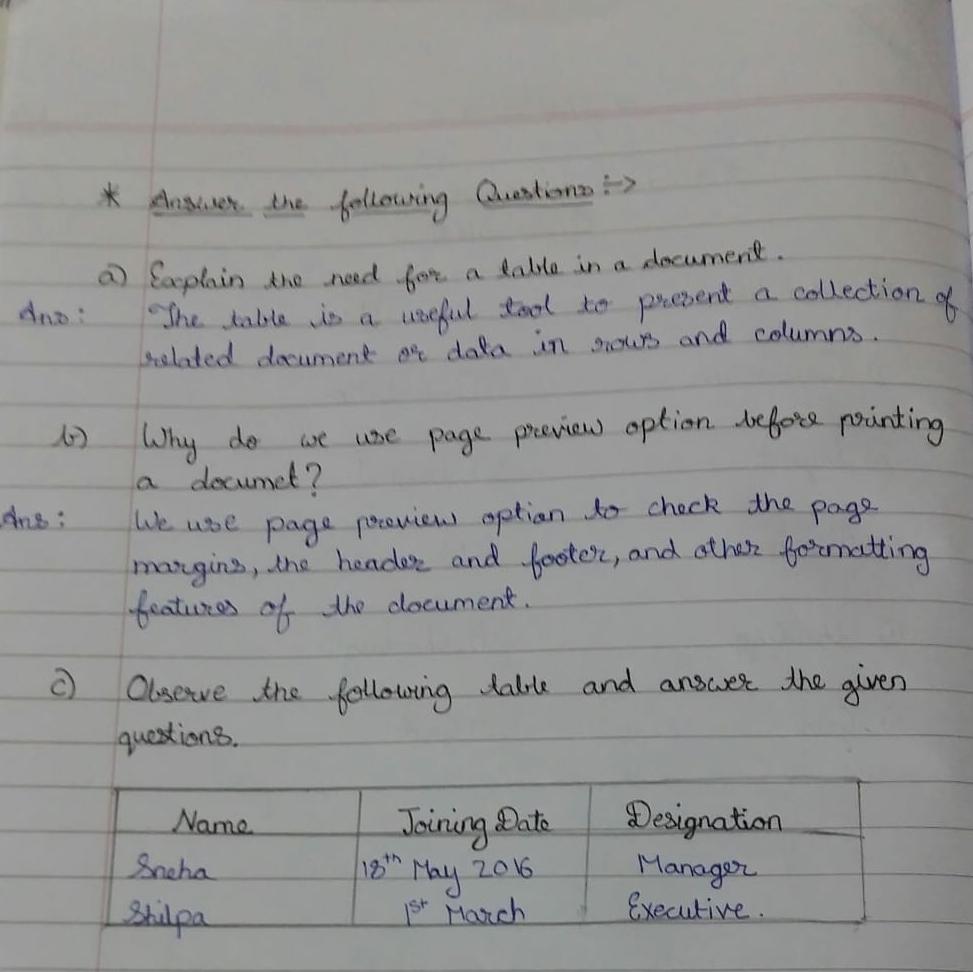 * Answer the following Questions :->
a) Explain the need for a table in a document.
Ans: The table is a useful tool to present a collection of
related document or data in rows and columns.
b) Why do we use page preview option before printing
a documet?
Ans: We use page preview option to check the page
margins, the header and footer, and other formatting
features of the document.
c) Observe the following table and answer the given
questions.
Name Joining Date Designation
Sneha 18th May 2016 Manager
Shilpa 1st March Executive.